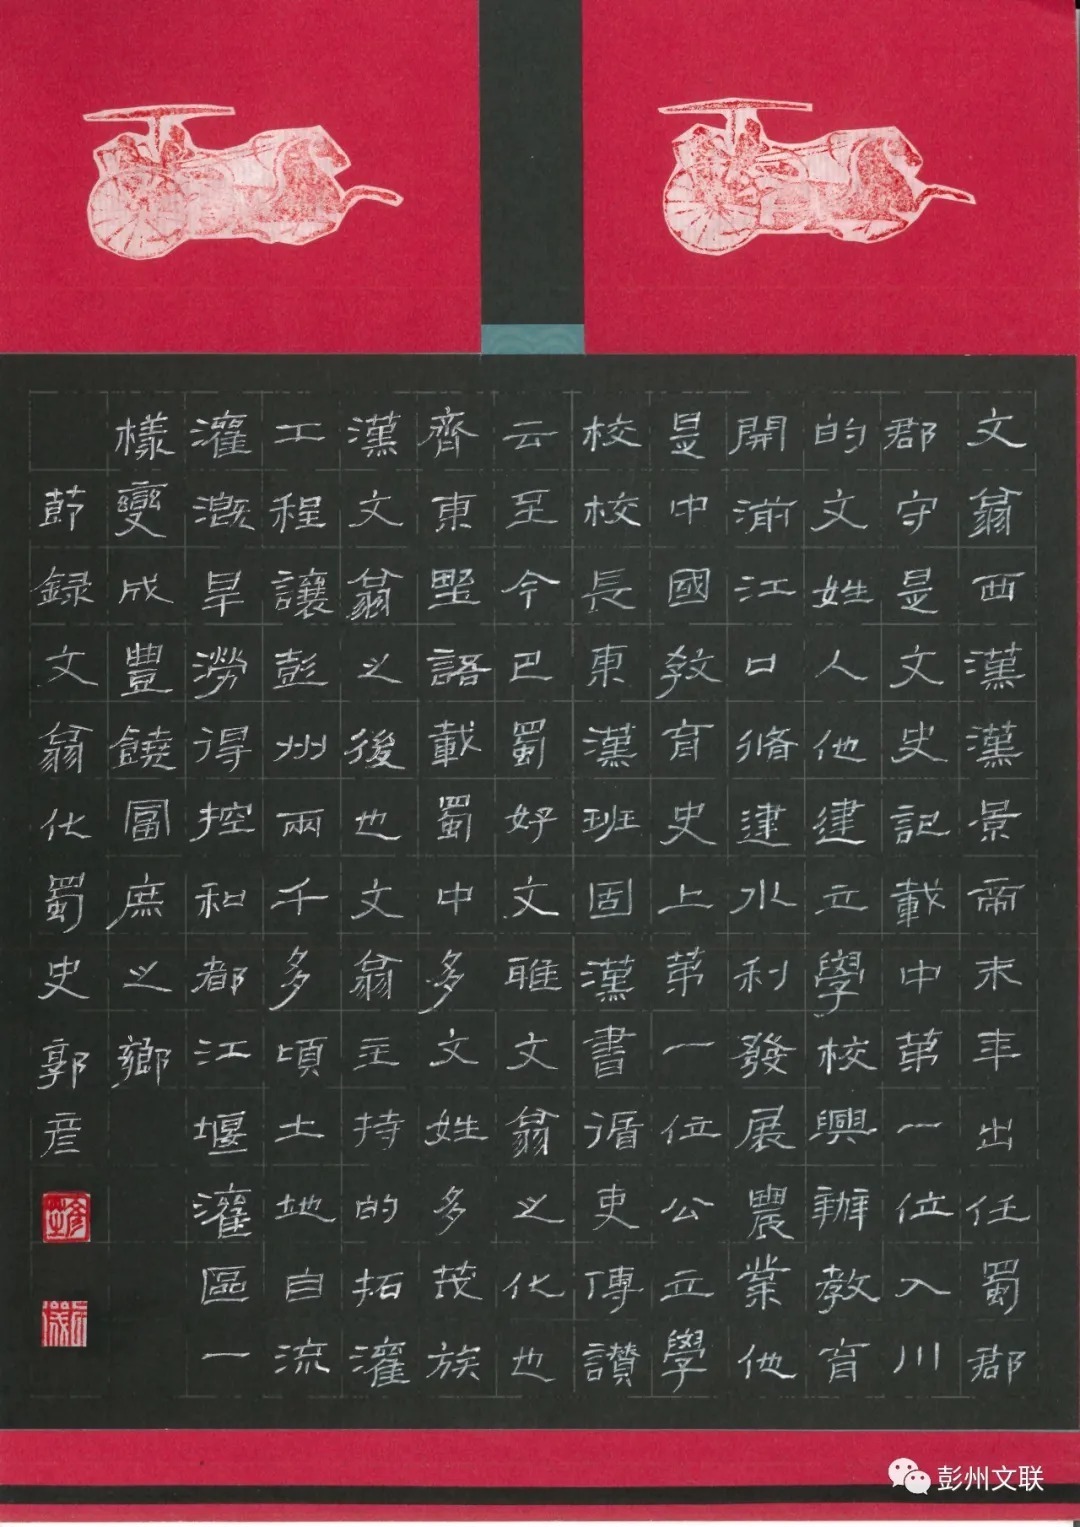 文翁西漢漢景帝末年出任蜀郡
郡守是文史記載中第一位入川
的文姓人他建立學校興辦教育
開湔江口脩建水利發展農業他
是中國教育史上第一位公立學
校校長東漢班固漢書循吏傳讃
云至今巴蜀好文雅文翁之化也
齊東墅語載蜀中多文姓多茂族
漢文翁之後也文翁主持的拓灌
工程讓彭州兩千多頃土地自流
灌溉旱澇得控和都江堰灌區一
樣變成豐饒冨庶之鄉
節録文翁化蜀史郭彦
彭州文联